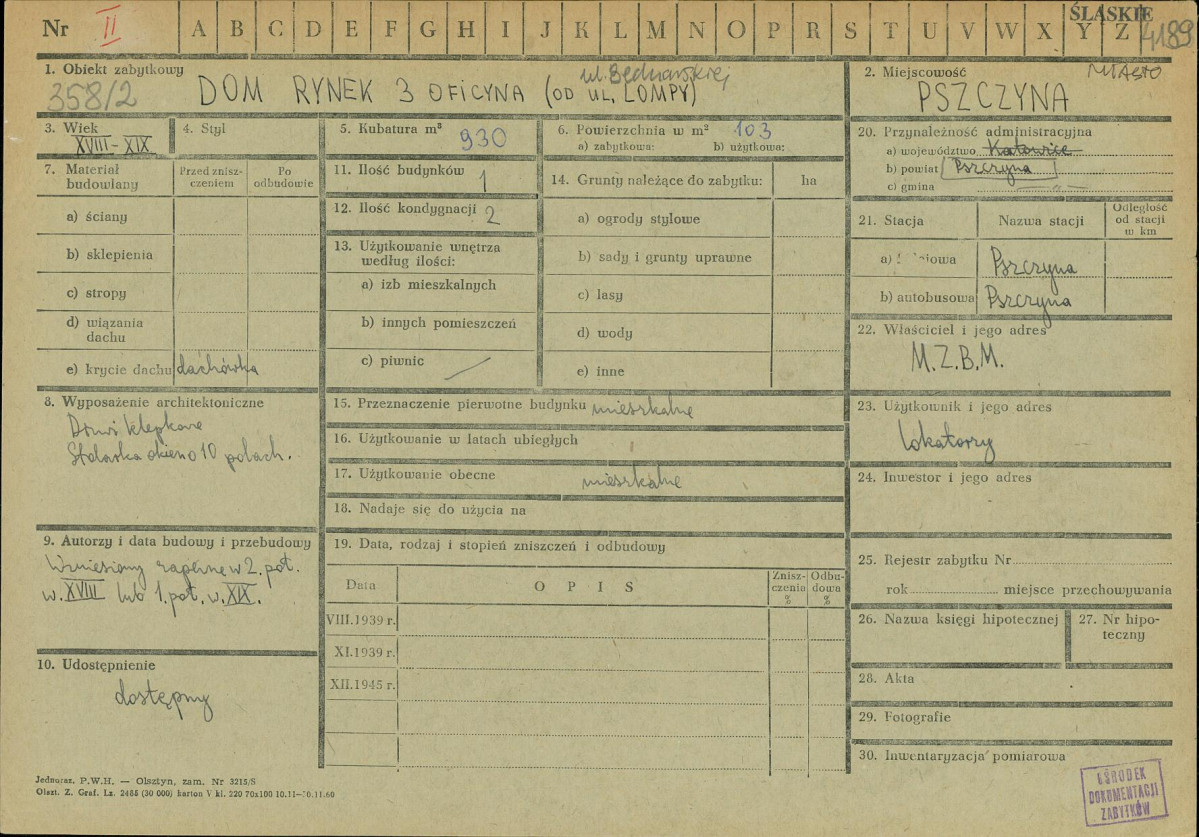 Nr II A B C D E F G H I J K L M N O P R S T U V W X Y Z
ŚLĄSKIE
4189
1. Obiekt zabytkowy
358/2
DOM RYNEK 3 OFICYNA (OD UL. LOMPY)
ul. Bednarskiej
2. Miejscowość
MIASTO
PSZCZYNA
3. Wiek
XVIII-XIX
4. Styl
5. Kubatura m³ 930
6. Powierzchnia w m² 103
a) zabytkowa: b) użytkowa:
20. Przynależność administracyjna
a) województwo Katowice
b) powiat Pszczyna
c) gmina — „ —
7. Materiał budowlany
Przed znisz-
czeniem
Po
odbudowie
a) ściany
b) sklepienia
c) stropy
d) wiązania
dachu
e) krycie dachu dachówka
11. Ilość budynków 1
12. Ilość kondygnacji 2
13. Użytkowanie wnętrza
według ilości:
a) izb mieszkalnych
b) innych pomieszczeń
c) piwnic —
14. Grunty należące do zabytku: ha
a) ogrody stylowe
b) sady i grunty uprawne
c) lasy
d) wody
e) inne
21. Stacja Nazwa stacji
Odległość
od stacji
w km
a) Pszczyna
b) autobusowa Pszczyna
22. Właściciel i jego adres
M.Z.B.M.
8. Wyposażenie architektoniczne
Drzwi klepkowe
Stolarka okien o 10 polach.
15. Przeznaczenie pierwotne budynku mieszkalne
16. Użytkowanie w latach ubiegłych
17. Użytkowanie obecne mieszkalne
18. Nadaje się do użycia na
23. Użytkownik i jego adres
lokatorzy
24. Inwestor i jego adres
9. Autorzy i data budowy i przebudowy
Wzniesiony zapewne w 2. poł.
w. XVIII lub 1. poł. w. XIX.
10. Udostępnienie
dostępny
19. Data, rodzaj i stopień zniszczeń i odbudowy
Data OPIS
Znisz-
czenia
%
Odbu-
dowa
%
VIII.1939 r.
XI.1939 r.
XII.1945 r.
25. Rejestr zabytku Nr
rok miejsce przechowywania
26. Nazwa księgi hipotecznej
27. Nr hipo-
teczny
28. Akta
29. Fotografie
30. Inwentaryzacja pomiarowa
Jednoraz. P.W.H. — Olsztyn, zam. Nr 3215/S
Olszt. Z. Graf. Lz. 2485 (30 000) karton V kl. 220 70x100 10.11— .11.60
OŚRODEK
DOKUMENTACJI
ZABYTKÓW